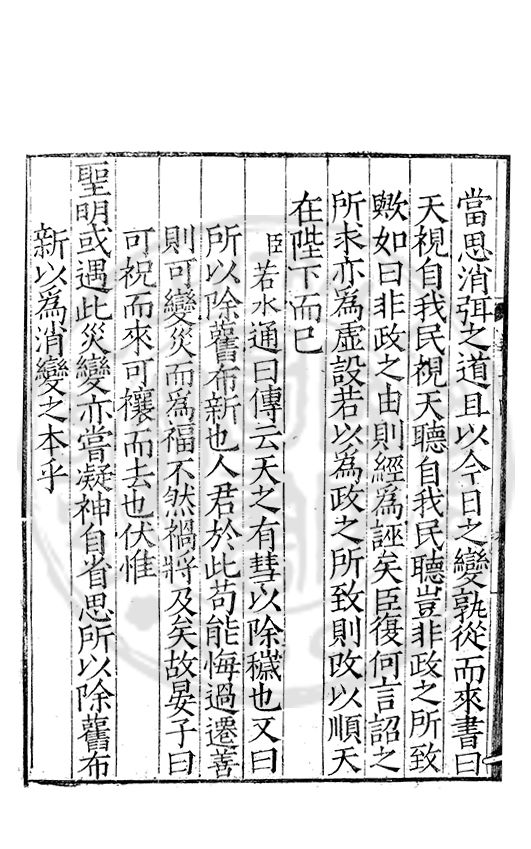 當思消弭之道且以今日之變孰從而來書曰
天視自我民視天聽自我民聽豈非政之所致
歟如曰非政之由則經為誣矣臣復何言詔之
所求亦為虛設若以為政之所致則改以順天
在陛下而已
臣若水通曰傳云天之有彗以除穢也又曰
所以除舊布新也人君於此苟能悔過遷善
則可變災而為福不然禍將及矣故晏子曰
可祝而來可禳而去也伏惟
聖明或遇此災變亦當凝神自省思所以除舊布
新以為消變之本乎